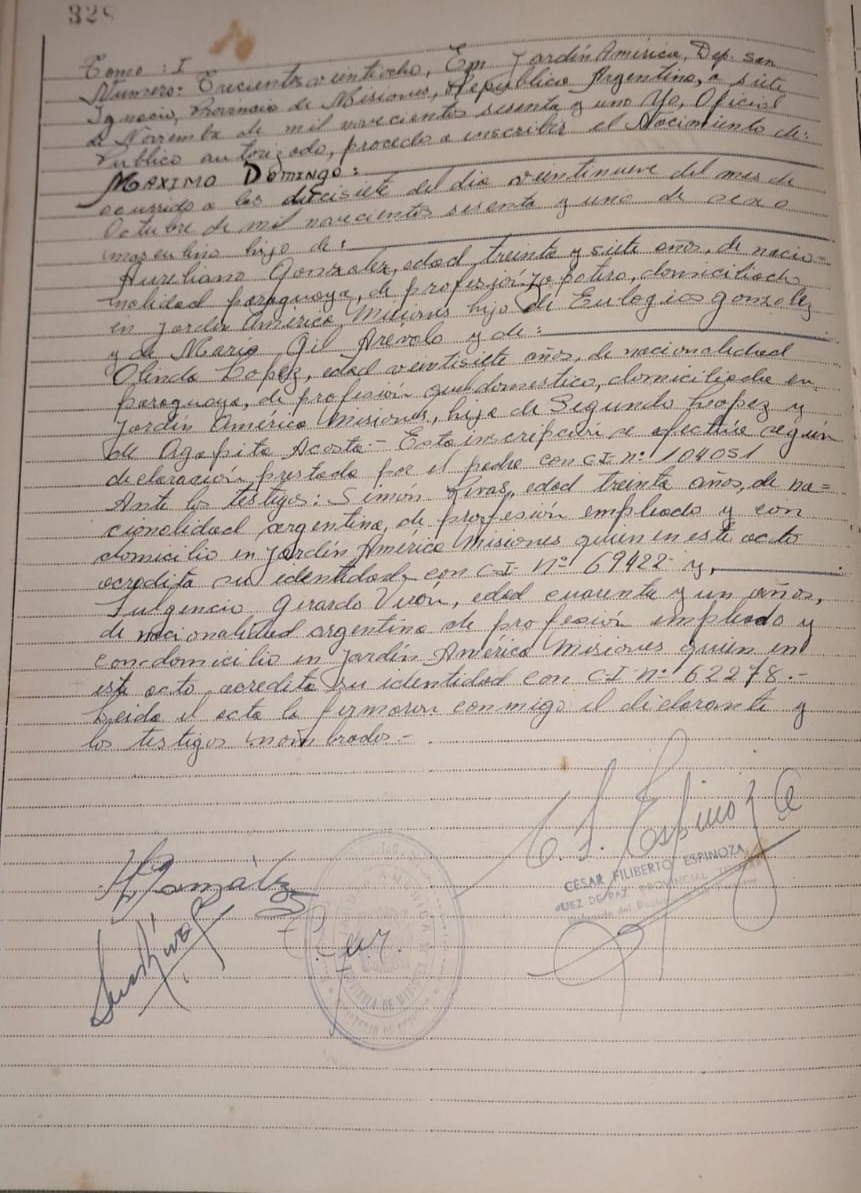 328
Tomo : I
Numero: Trecientos veintiocho, En Jardín América, Dep. San
Ignacio, Provincia de Misiones, Republica Argentina, a siete
de Noviembre de mil novecientos sesenta y uno Yo, Oficial
Publico autorizado, procedo a inscribir el Nacimiento de:
MAXIMO DOMINGO:
ocurrido a las diecisiete del dia veintinueve del mes de
Octubre de mil novecientos sesenta y uno de sexo
masculino hijo de:
Aureliano Gonzalez, edad treinta y siete años, de nacio=
nalidad paraguaya, de profesión zapatero, domiciliado
en Jardin América Misiones hijo de Eulogio Gonzalez
y de Maria Gil Arévalo y de:
Olinda Lopez, edad veintisiete años, de nacionalidad
paraguaya, de profesión que domestico, domiciliada en
Jardín América Misiones, hija de Segundo Lopez y
de Agapita Acosta - Esta inscripción se efectúa según
declaración prestada por el padre con C.I nº 104051
Ante los testigos: Simón Rivas, edad treinta años, de na=
cionalidad argentina, de profesión empleado y con
domicilio en Jardín América Misiones quien en este acto
acredita su identidad con C-I- Nº 69422 y,
Fulgencio Gerardo edad cuarenta y un años,
de nacionalidad argentina de profesión empleado y
con domicilio en Jardín América Misiones quien en
este acto acredita su identidad con C-I-nº 62278.-
Leida el acta la firmaron conmigo el declarante y
los testigos nombrados.-
C. F. Espinoza
González
CESAR FILIBERTO ESPINOZA
JUEZ DE PAZ PROVINCIAL
PROVINCIA DE MISIONES